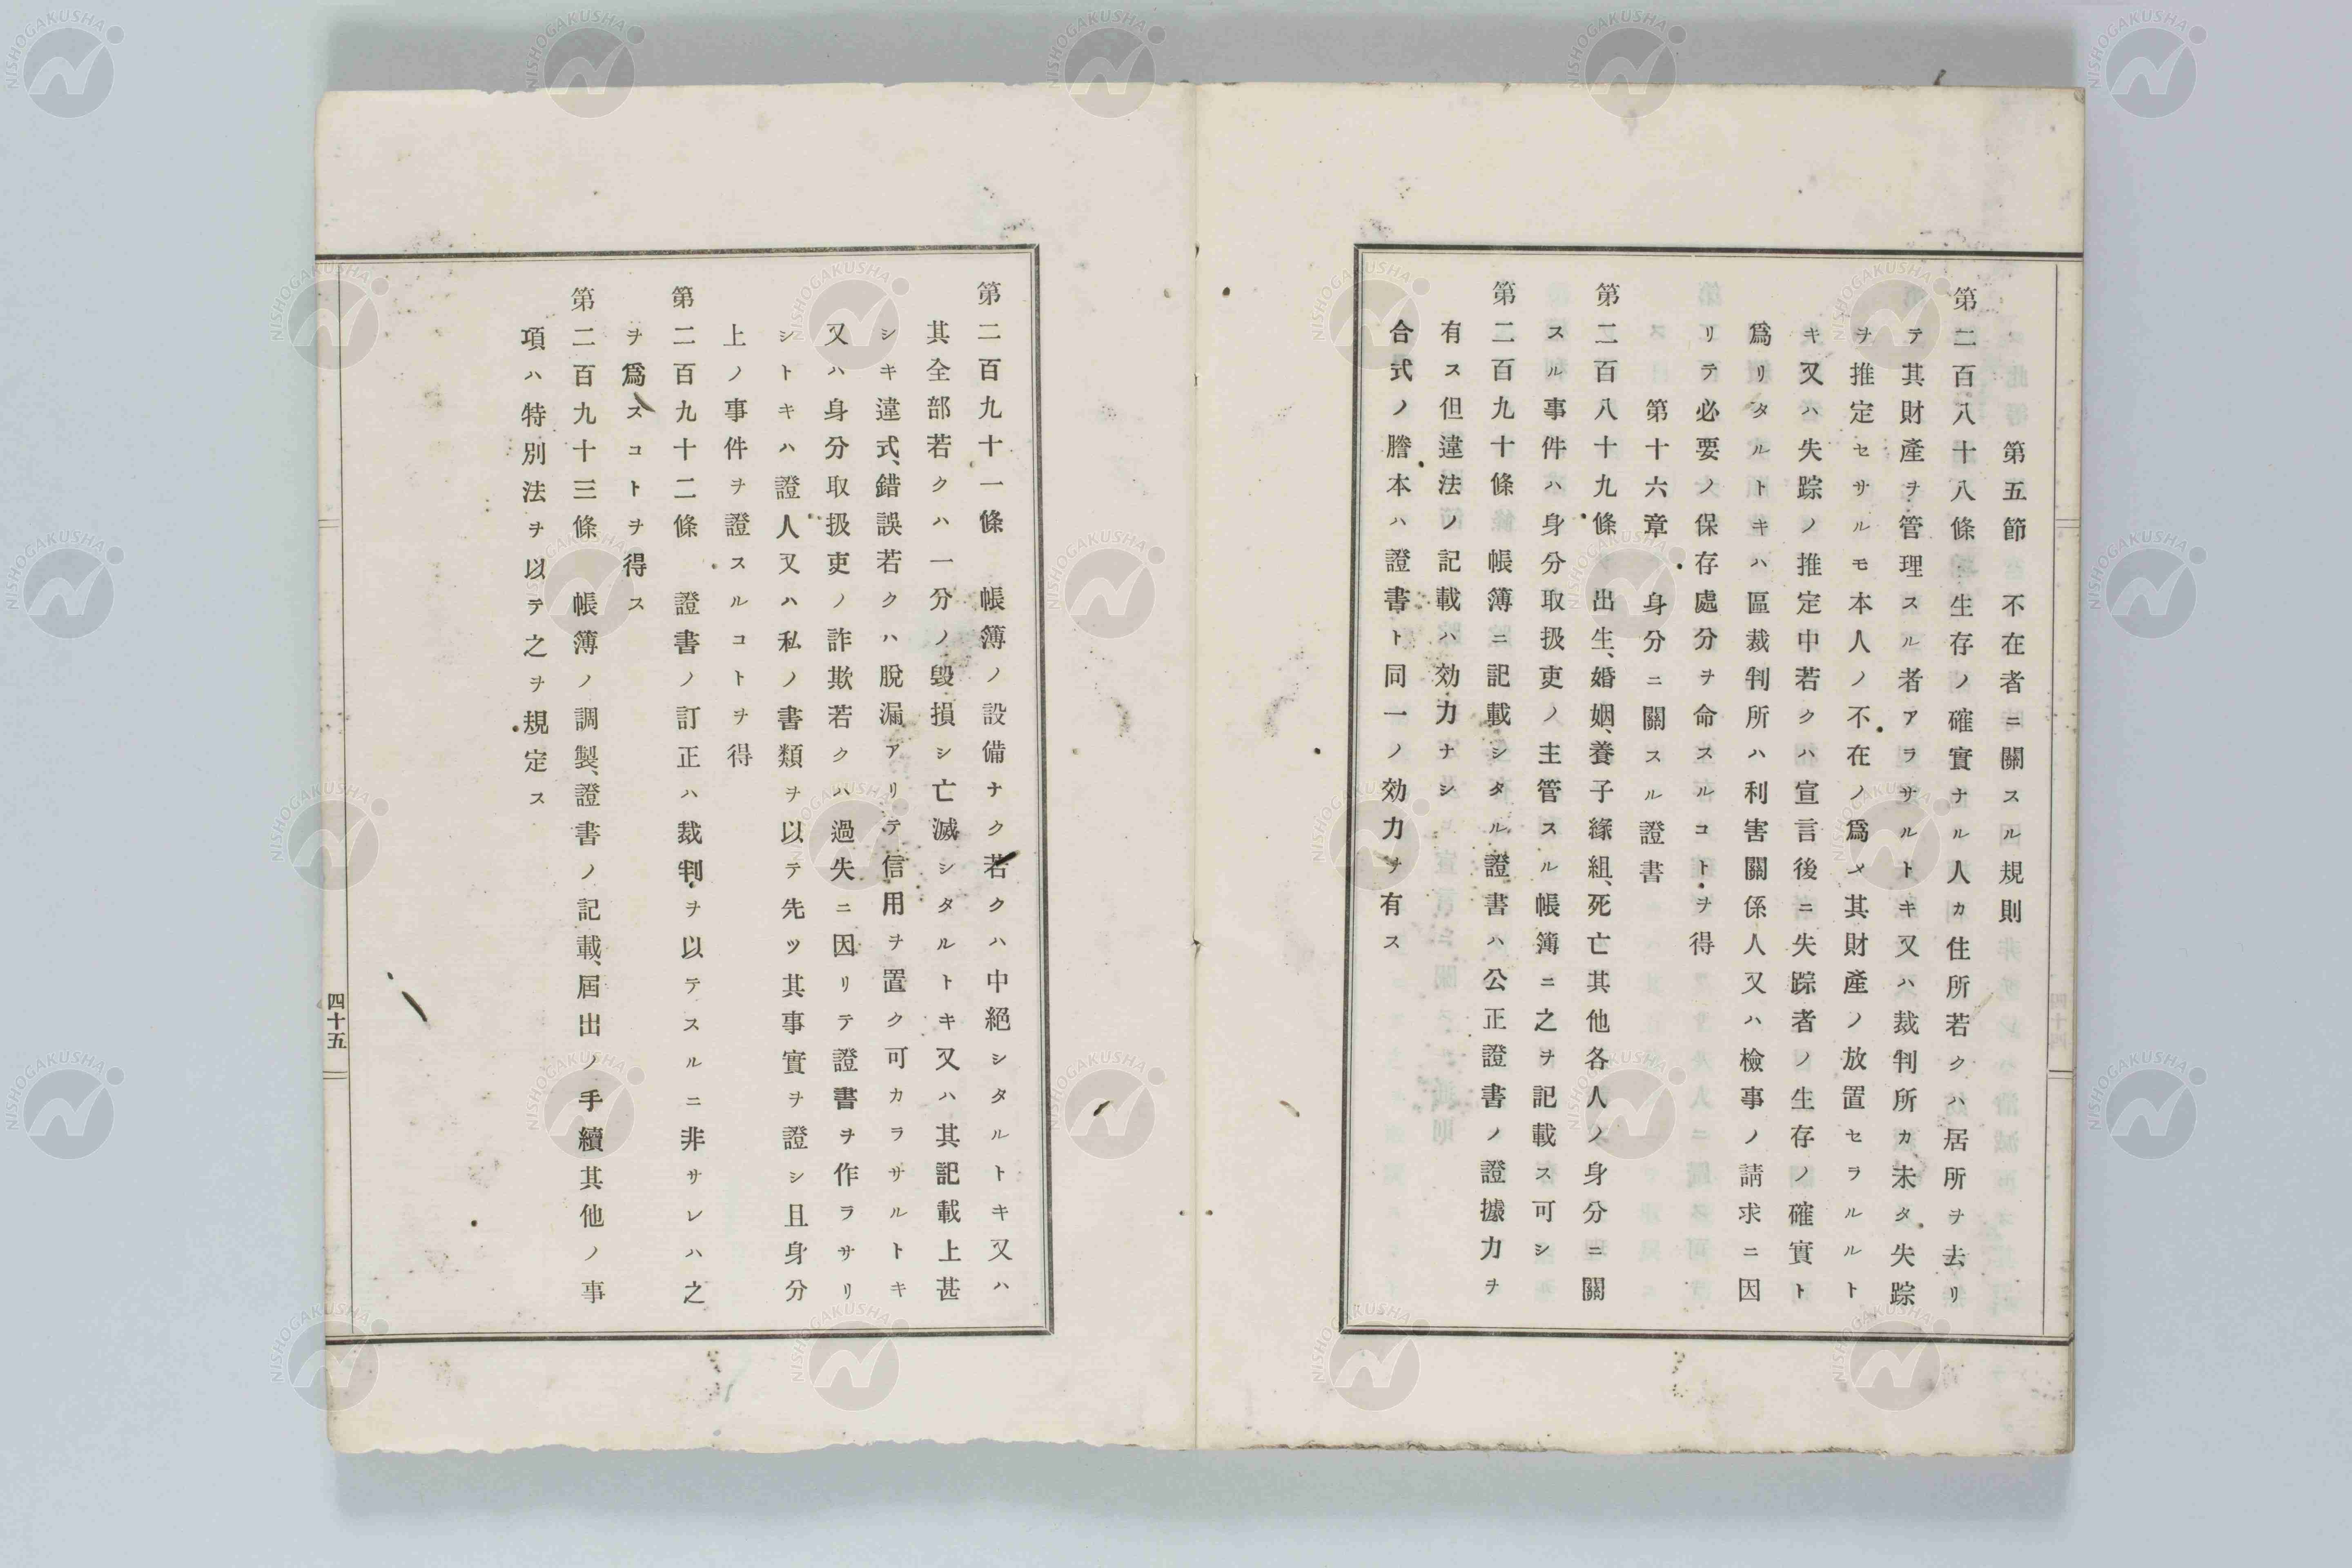 第五節 不在者ニ關スル規則
第二百八十八條 生存ノ確實ナル人カ住所若クハ居所ヲ去リ
テ其財產ヲ管理スル者アラサルトキ又ハ裁判所カ未タ失踪
ヲ推定セサルモ本人ノ不在ノ爲メ其財產ノ放置セラルルト
キ又ハ失踪ノ推定中若クハ宣言後ニ失踪者ノ生存ノ確實ト
爲リタルトキハ區裁判所ハ利害關係人又ハ檢事ノ請求ニ因
リテ必要ノ保存處分ヲ命スルコトヲ得
第十六章 身分ニ關スル證書
第二百八十九條 出生、婚姻、養子緣組、死亡其他各人ノ身分ニ關
スル事件ハ身分取扱吏ノ主管スル帳簿ニ之ヲ記載ス可シ
第二百九十條 帳簿ニ記載シタル證書ハ公正證書ノ證據力ヲ
有ス但違法ノ記載ハ効力ナシ
合式ノ謄本ハ證書ト同一ノ効力ヲ有ス
第二百九十一條 帳簿ノ設備ナク若クハ中絕シタルトキ又ハ
其全部若クハ一分ノ毀損シ亡滅シタルトキ又ハ其記載上甚
シキ違式、錯誤若クハ脫漏アリテ信用ヲ置ク可カラサルトキ
又ハ身分取扱吏ノ詐欺若クハ過失ニ因リテ證書ヲ作ラサリ
シトキハ證人又ハ私ノ書類ヲ以テ先ツ其事實ヲ證シ且身分
上ノ事件ヲ證スルコトヲ得
第二百九十二條 證書ノ訂正ハ裁判ヲ以テスルニ非サレハ之
ヲ爲スコトヲ得ス
第二百九十三條 帳簿ノ調製、證書ノ記載、屆出ノ手續其他ノ事
項ハ特別法ヲ以テ之ヲ規定ス
四十五
NISHOGAKUSHA